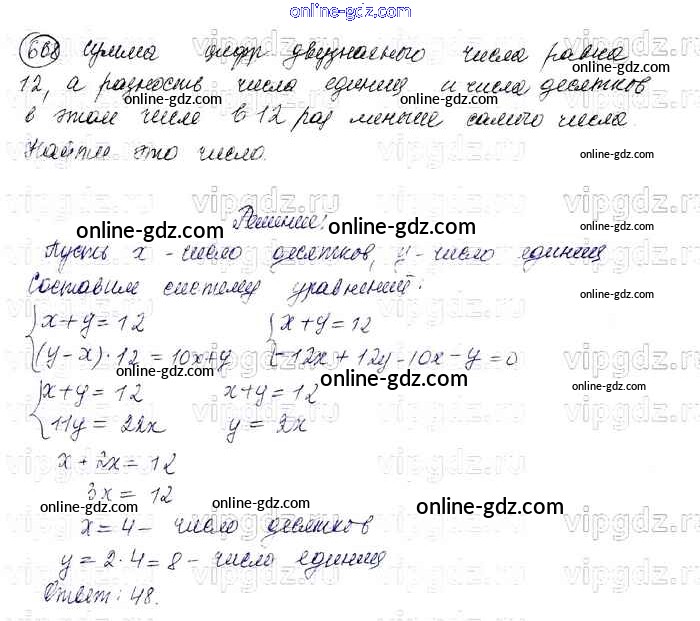 online-gdz.com
668 Сумма цифр двузначного числа равна
12, а разность числа единиц и числа десятков
online-gdz.com online-gdz.com online-gdz.com
в этом числе в 12 раз меньше самого числа.
Найти это число.
online-gdz.com
Решение:
online-gdz.com online-gdz.com
Пусть x - число десятков, y - число единиц
Составим систему уравнений:
online-gdz.com
x+y=12 x+y=12
(y-x)·12=10x+y -12x+12y-10x-y=0
online-gdz.com online-gdz.com
x+y=12 x+y=12
online-gdz.com
11y=22x y=2x
x+2x=12
3x=12
online-gdz.com online-gdz.com online-gdz.com
x=4- число десятков
y=2·4=8- число единиц
online-gdz.com
Ответ: 48.
vipgdz.ru